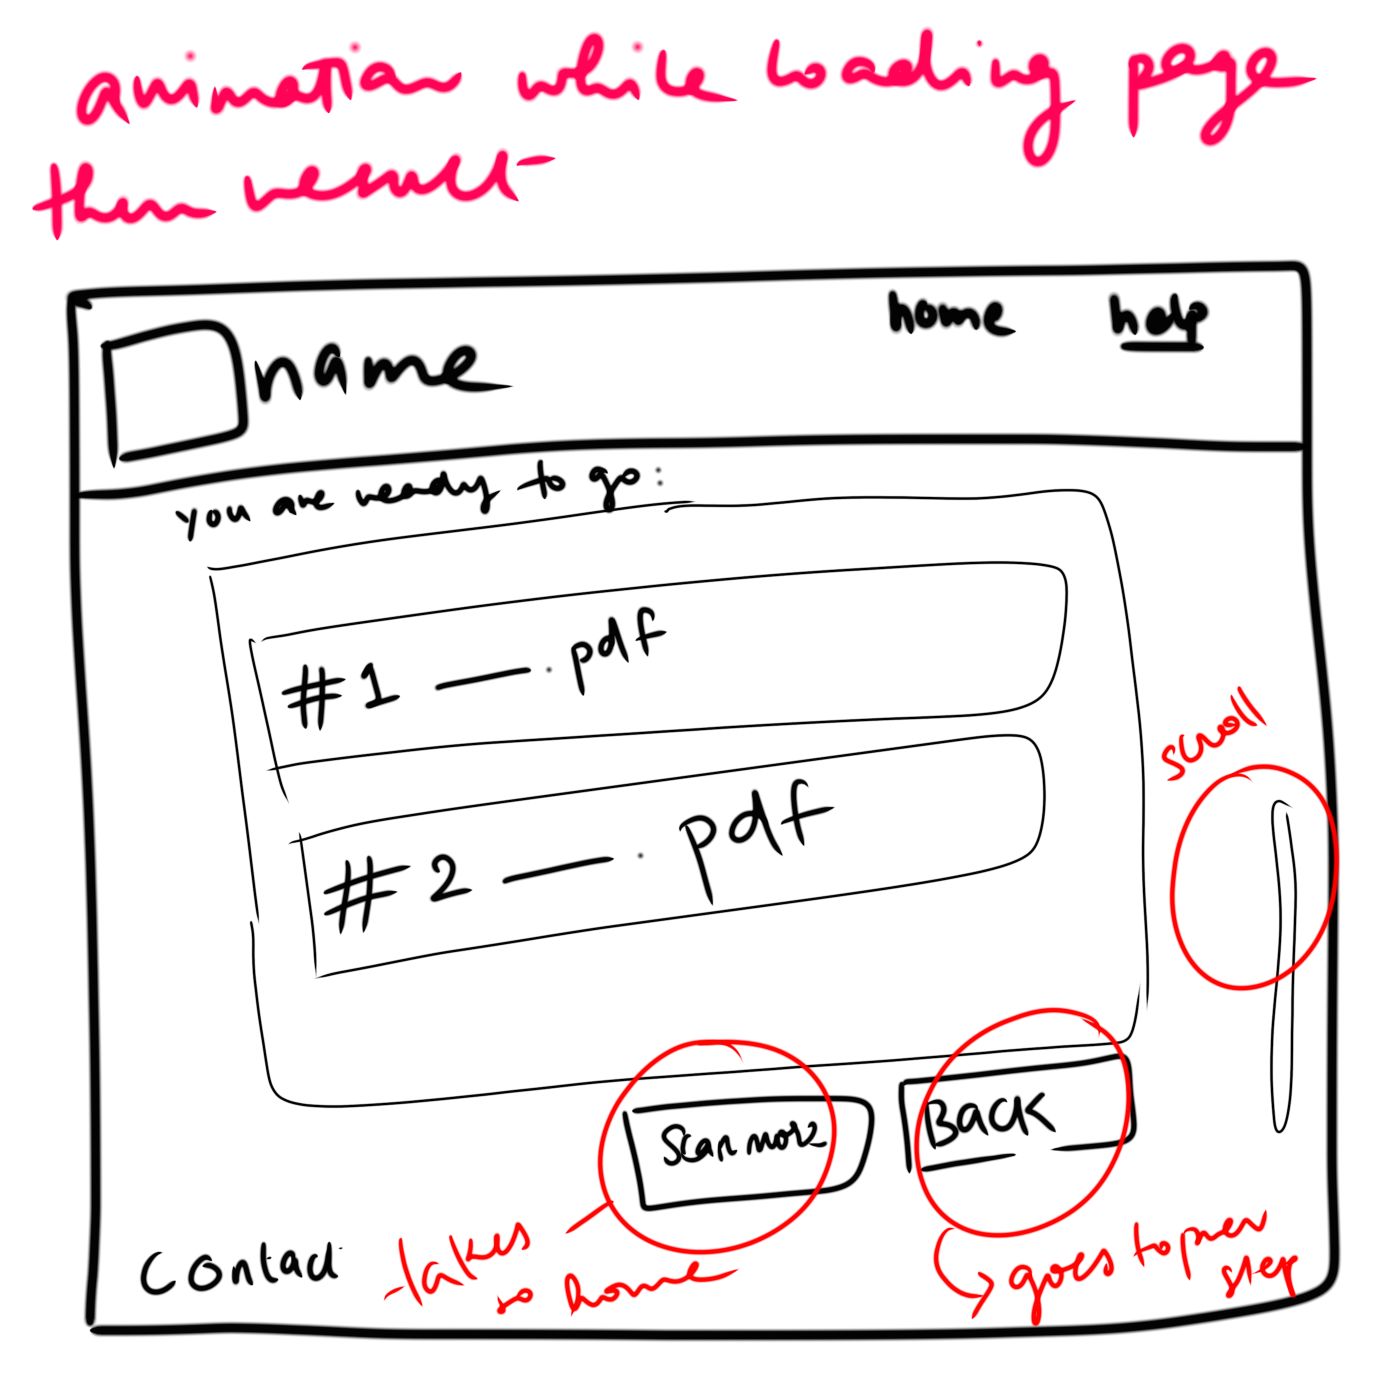 animation while loading page
then result
name
home
help
you are ready to go:
#1 — . pdf
#2 — . pdf
scroll
Scan more
BACK
Contact
takes
to home
goes to prev
step